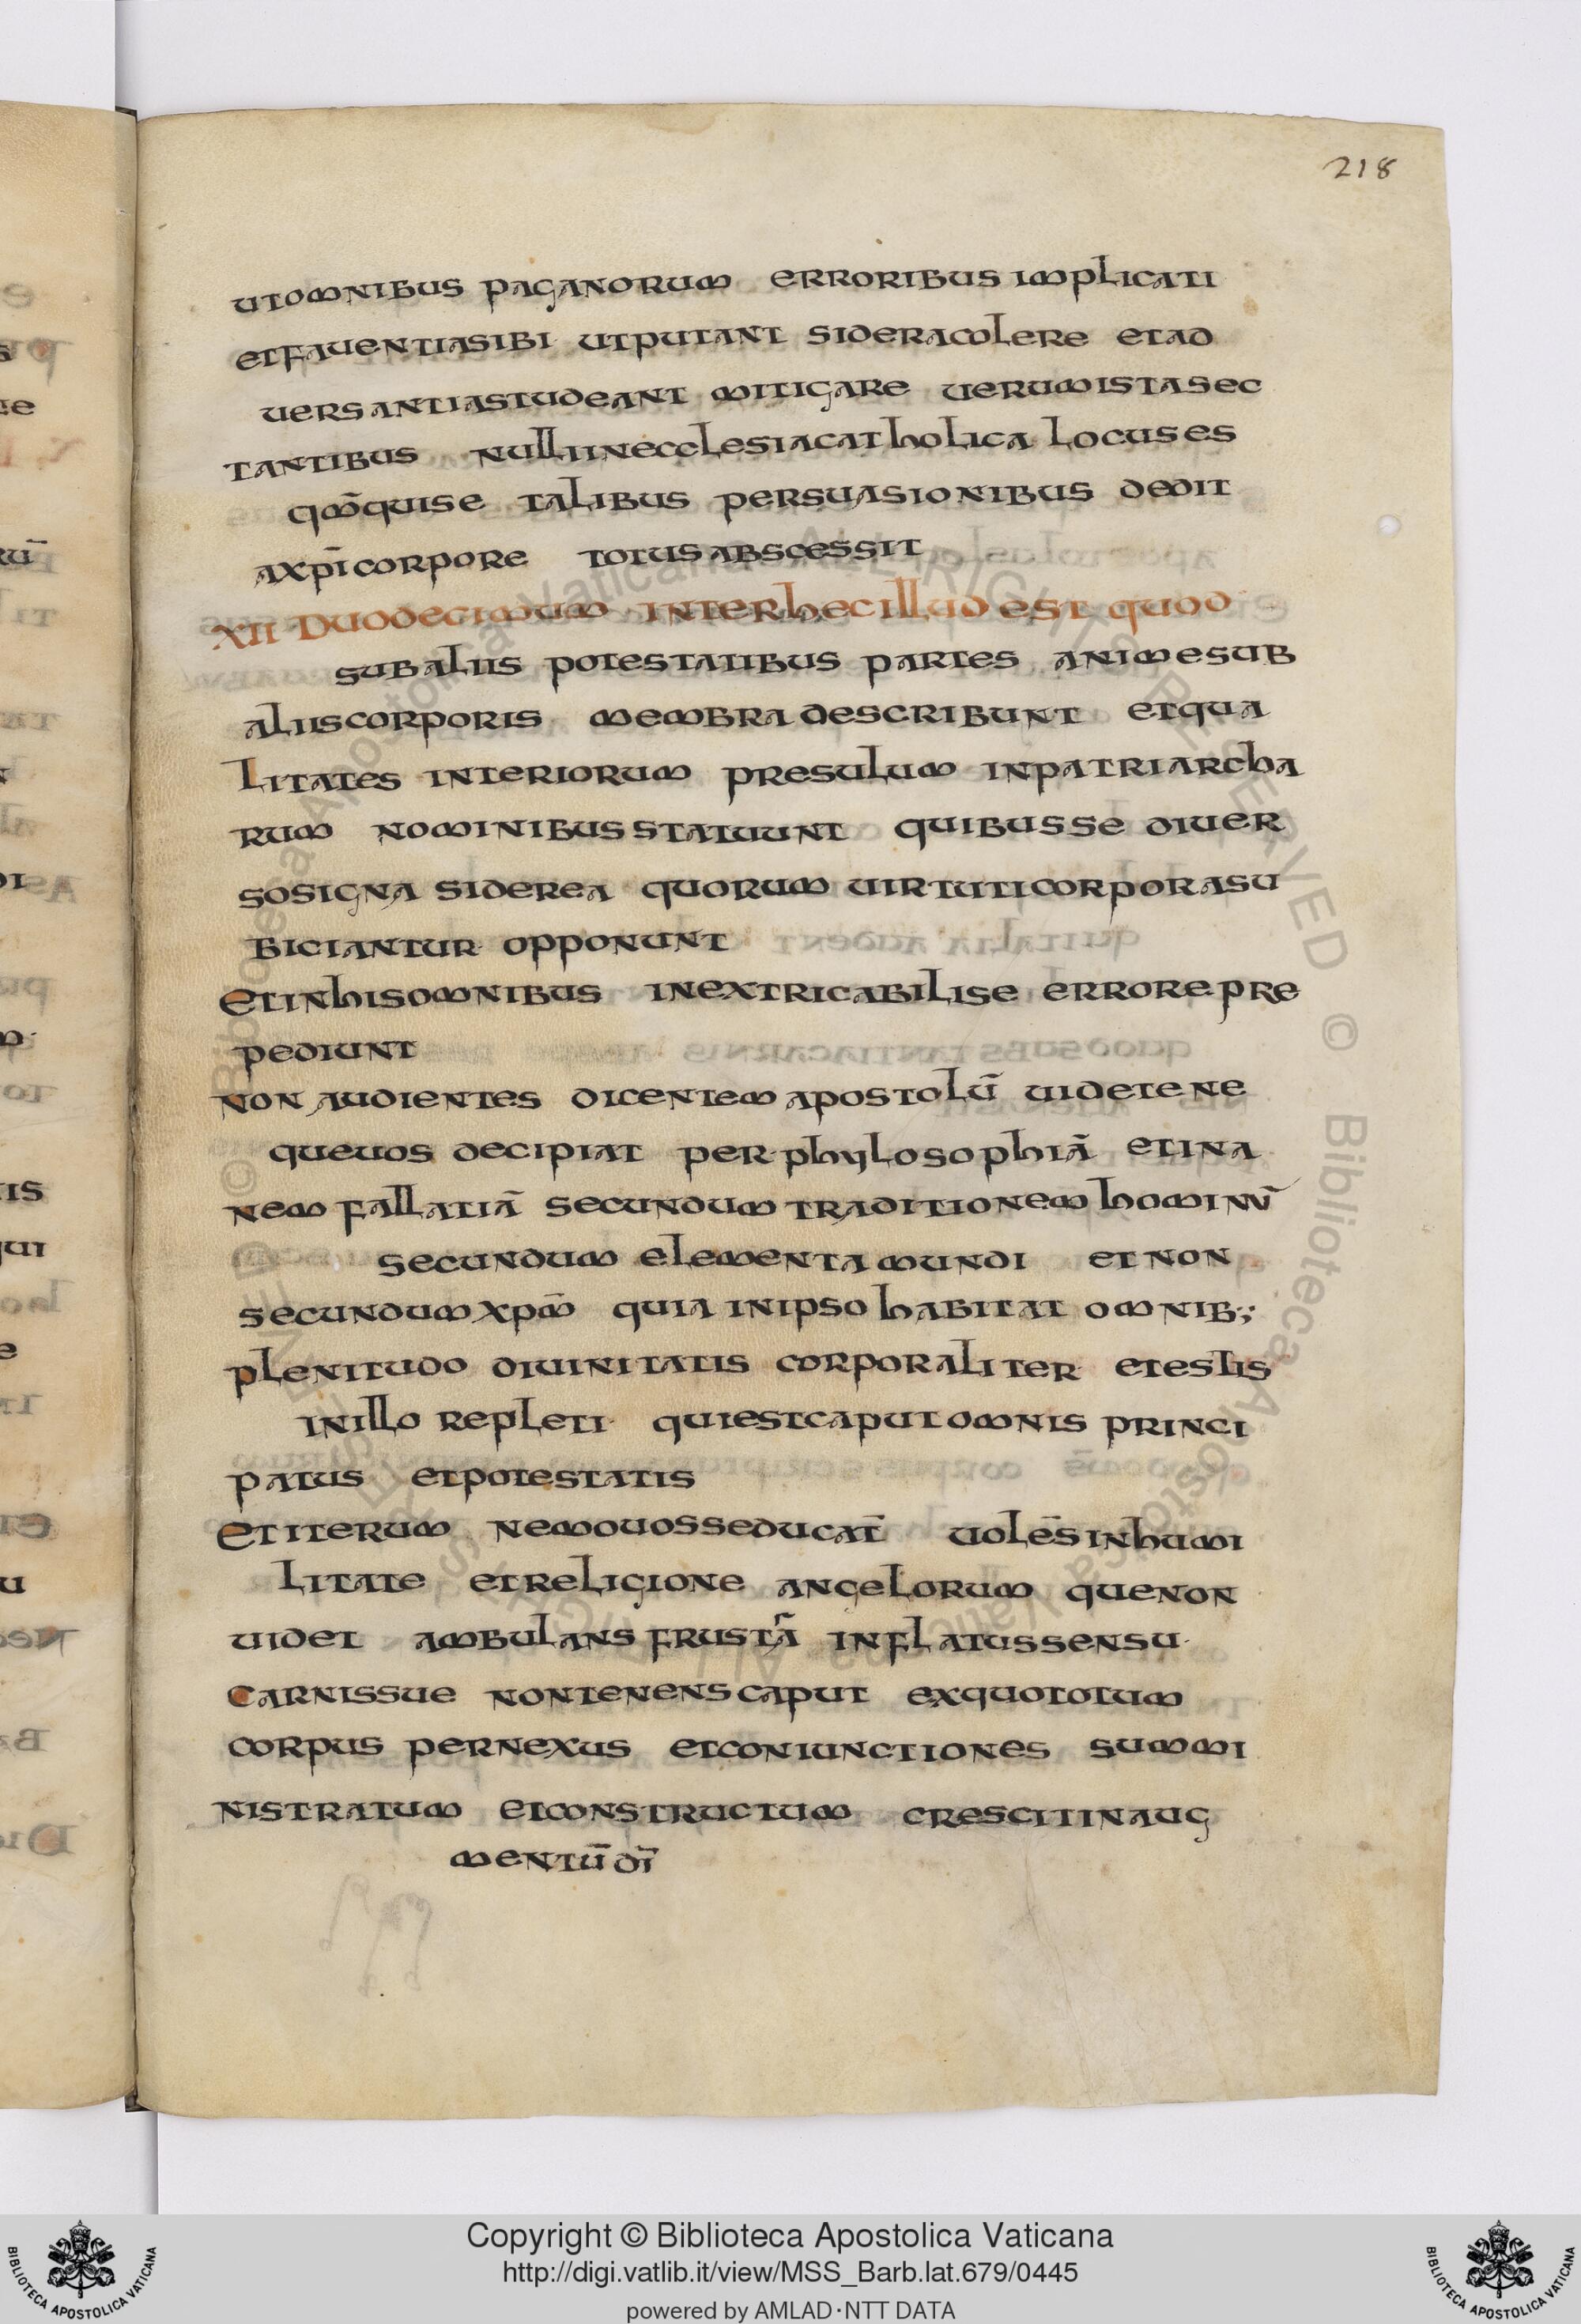 218
utomnibus paganorum erroribus implicati
etfauentiasibi utputant sideracolere etad
uersantiastudeant mitigare uerumistasec
tantibus nulliinecclesiacatholica locuses
qm̄quise talibus persuasionibus dedit
axp̄icorpore totusabscessit
XII Duodecimum interhecillud est quod
subaliis potestatibus partes animesub
aliiscorporis membra describunt etqua
litates interiorum presulum inpatriarcha
rum nominibusstatuunt quibusse diuer
sosigna siderea quorum uirtuticorporasu
biciantur opponunt
Etinhisomnibus inextricabilise errorepre
pediunt
non audientes dicentem apostolū uidetene
queuos decipiat per phylosophiā etina
nem fallatiā secundum traditionem hominū
secundum elementa mundi et non
secundum xpm̄ quia inipso habitat omnib;
plenitudo diuinitatis corporaliter etestis
inillo repleti quiestcaputomnis princi
patus etpotestatis
Et iterum nemouosseducat̄ uolēsinhumi
litate etreligione angelorum quenon
uidet ambulans frustrā inflatussensu
carnissue nontenenscaput exquototum
corpus pernexus etconiunctiones summi
nistratum etconstructum crescitinaug
mentū dī
Copyright © Biblioteca Apostolica Vaticana
http://digi.vatlib.it/view/MSS_Barb.lat.679/0445
powered by AMLAD·NTT DATA
BIBLIOTECA APOSTOLICA VATICANA
BIBLIOTECA APOSTOLICA VATICANA